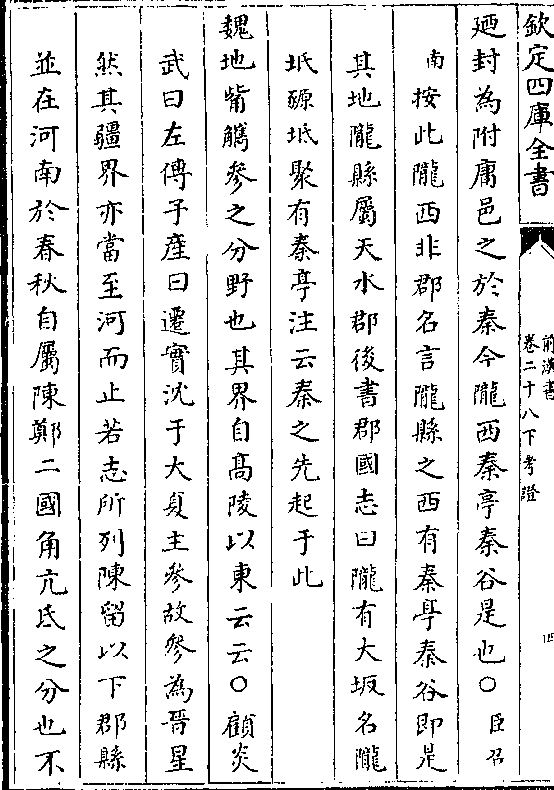 欽定四庫全書
前漢書
卷二十八下考證
四
廼封為附庸邑之於秦今隴西秦亭秦谷是也○臣召
南按此隴西非郡名言隴縣之西有秦亭秦谷即是
其地隴縣屬天水郡後書郡國志曰隴有大坂名隴
坻豲坻聚有秦亭注云秦之先起于此
魏地觜觿參之分野也其界自高陵以東云云○顧炎
武曰左傳子產曰遷實沈于大夏主參故參為晉星
然其疆界亦當至河而止若志所列陳留以下郡縣
並在河南於春秋自屬陳鄭二國角亢氐之分也不